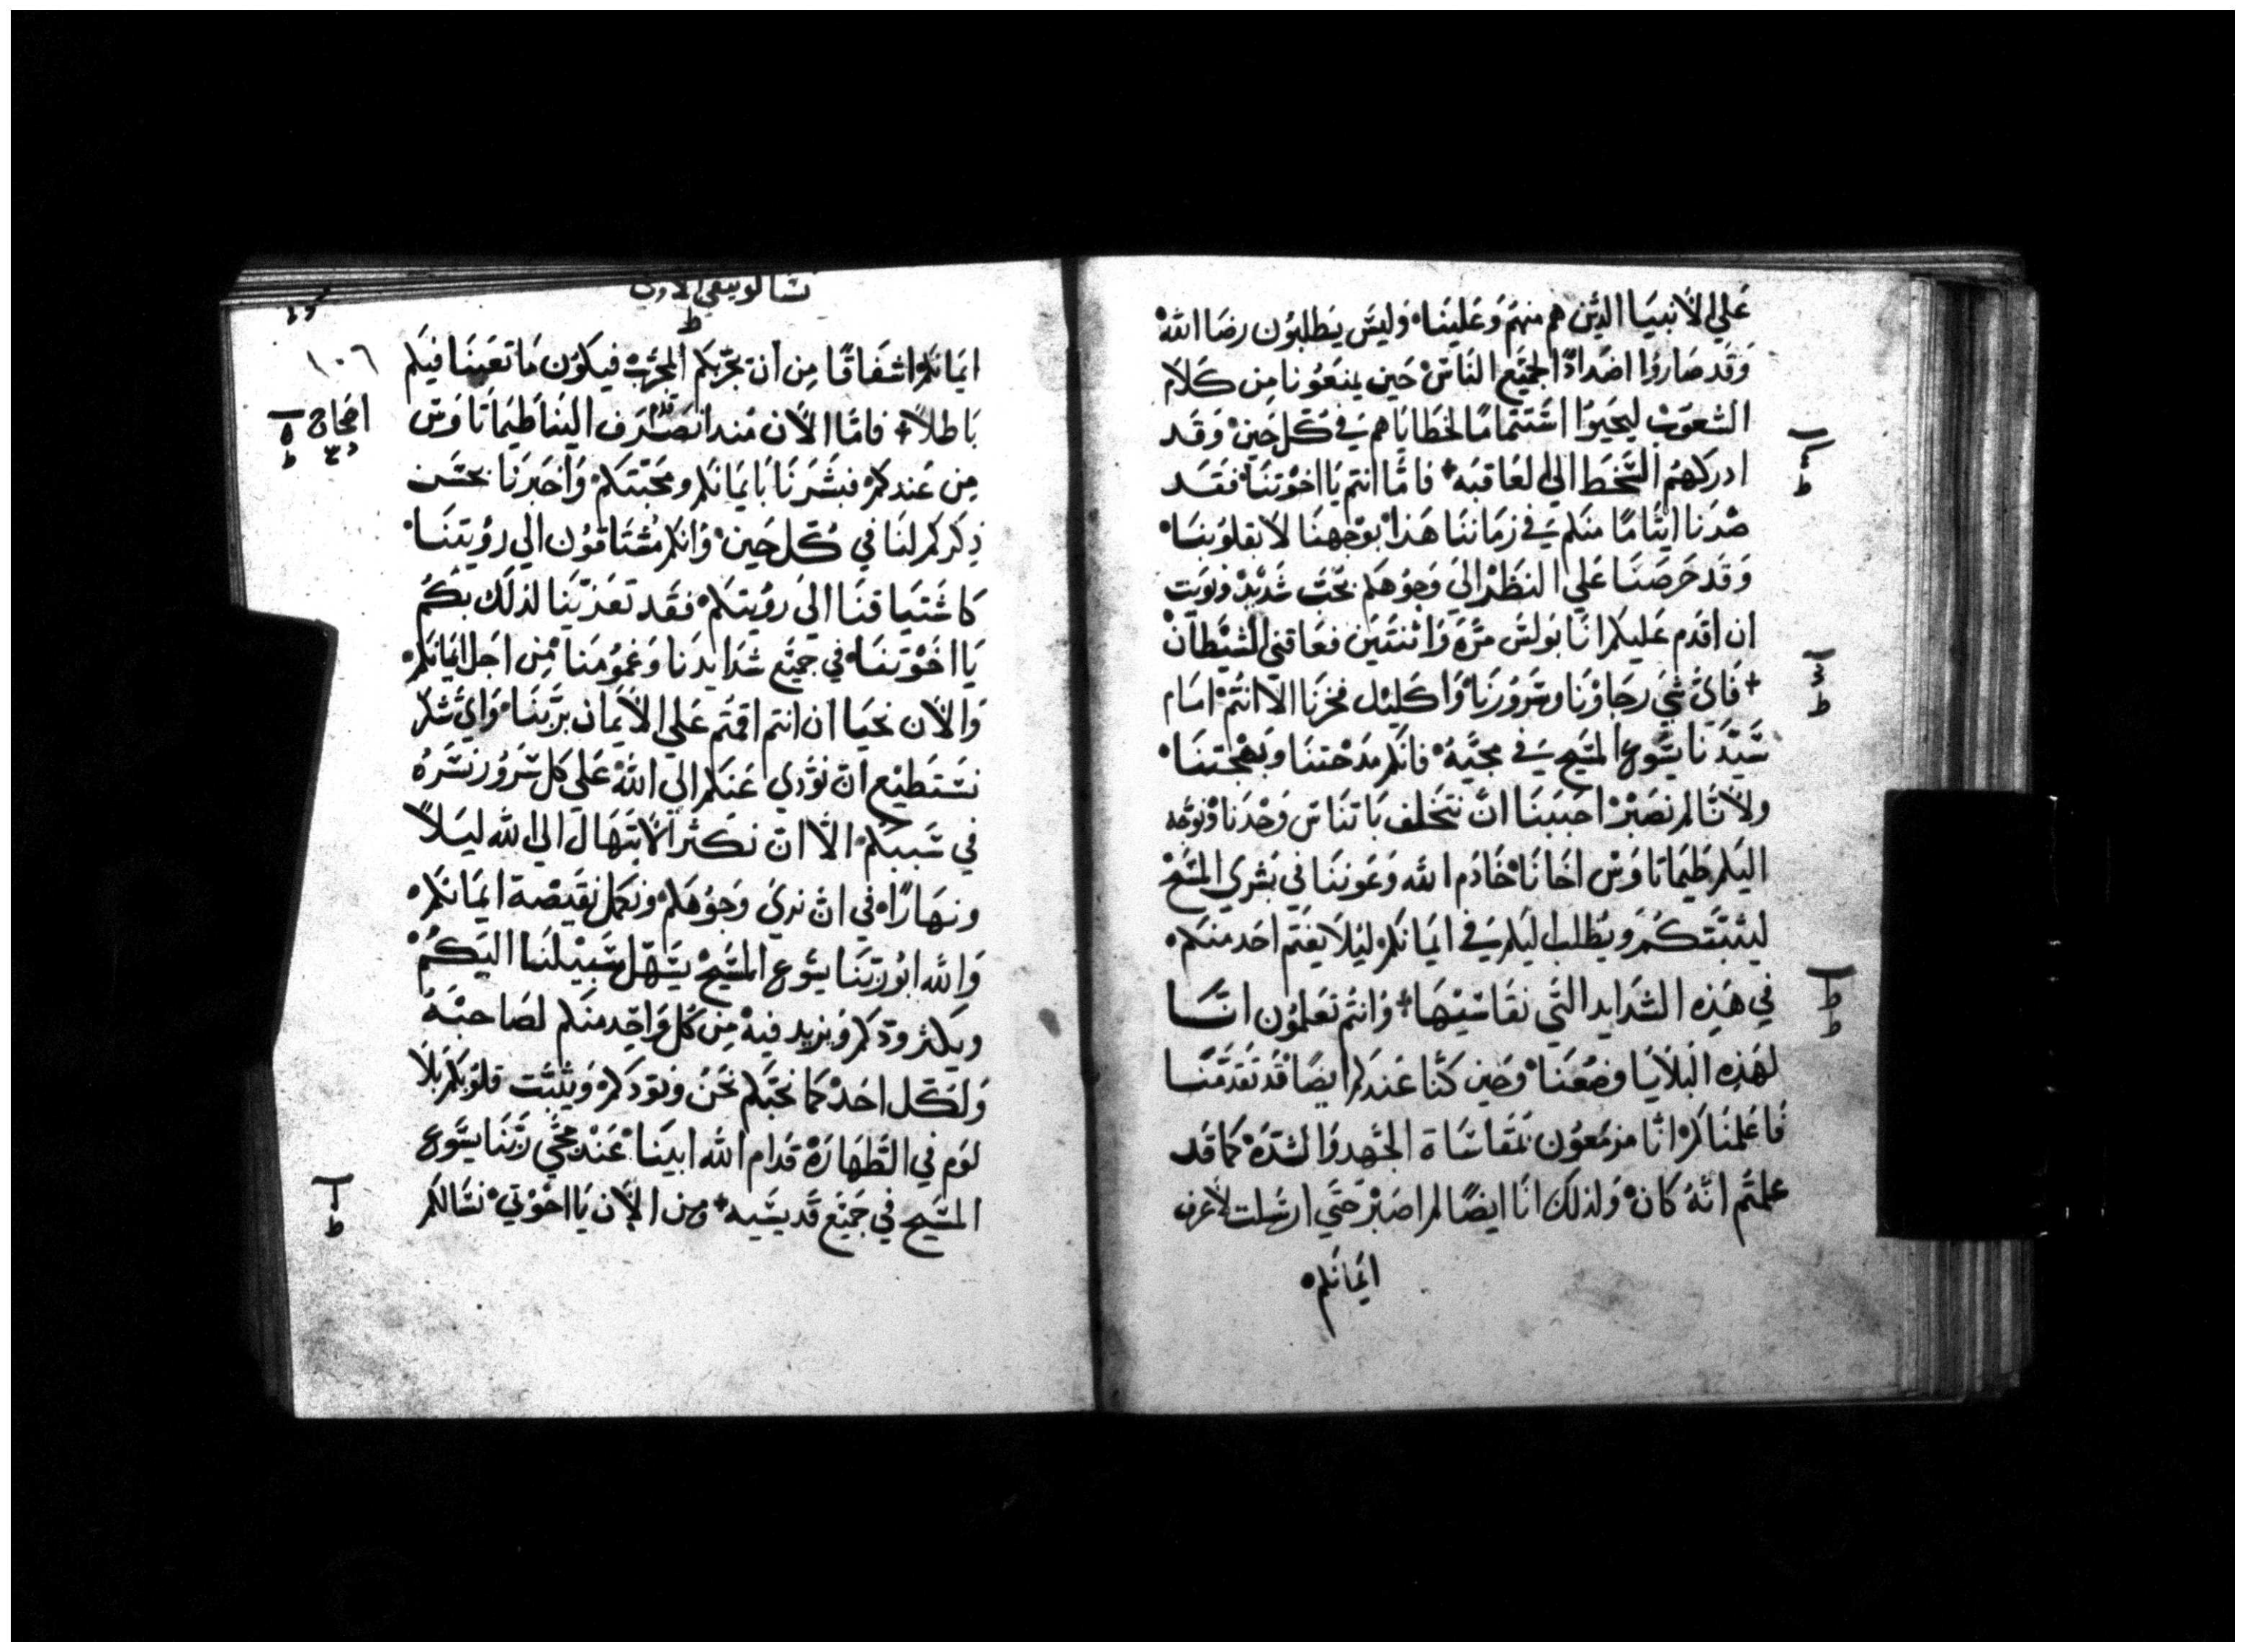 علي الانبيا الدين هم منهم وعلينا وليس يطلبون رضا الله
وقد صاروا اضدادًا لجميع الناس حين يمنعونا من كلام
الشعوب ليحيوا استتمامًا لخطاياهم في كل حين وقد
ادركهم السخط الي العاقبه فاما انتم يا اخوتنا فقد
صرنا ايتامًا منكم في زماننا هذا بوجهنا لا بقلوبنا
وقد حرصنا علي النظر الي وجوهكم بحب شديد ونويت
ان اقدم عليكم انا بولس مرة واثنتين فعاقني الشيطان
فاي شي رجاونا وسرورنا واكليل فخرنا الا انتم امام
سيدنا يسوع المسيح في مجيه فانكم مدحتنا وبهجتنا
ولانا لم نصبر احببنا ان نتخلف باتناس وحدنا ونوجه
اليكم طيماتاوس اخانا خادم الله وعوننا في بشري المسيح
ليثبتكم ويطلب اليكم في ايمانكم ليلا يغتم احد منكم
في هذه الشدايد التي نقاسيها وانتم تعلمون انا
لهذه البلايا وضعنا وحين كنا عندكم ايضا قد تقدمنا
فاعلمناكم انا مزمعون بمقاساة الجهد والشدة كما قد
علمتم انه كان ولذلك انا ايضًا لم اصبر حتي ارسلت لاعرف
ايمانكم
تسالونيقي الاولي
١٠٦
ايمانكم اشفاقًا من ان يجربكم المجرب فيكون ما تعبنا فيكم
باطلاً فاما الان منذ انصرف الينا طيماتاوس
اصحاح
من عندكم فبشرنا بايمانكم ومحبتكم واخبرنا بحسن
ذكركم لنا في كل حين وانكم مشتاقون الي رويتنا
كاشتياقنا الي رويتكم فقد تعزينا لذلك بكم
يا اخوتنا في جميع شدايدنا وغمومنا من اجل ايمانكم
والان نحيا ان انتم اقمتم علي الايمان بربنا واي شكر
نستطيع ان نودي عنكم الي الله علي كل سرور نسره
في سببكم الا ان نكثر الابتهال الي الله ليلاً
ونهارًا في ان نري وجوهكم ونكمل نقيصة ايمانكم
والله ابو ربنا يسوع المسيح يسهل سبيلنا اليكم
ويكثر ودكم ويزيد فيه من كل واحد منكم لصاحبه
ولكل احد كما نحبكم نحن ونودكم ويثبت قلوبكم بلا
لوم في الطهارة قدام الله ابينا عند مجي ربنا يسوع
المسيح في جميع قديسيه ومن الان يا اخوتي نسالكم